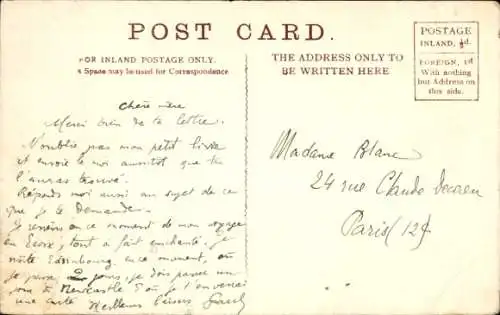 POST CARD.
FOR INLAND POSTAGE ONLY.
s Space may be used for Correspondence
THE ADDRESS ONLY TO
BE WRITTEN HERE
POSTAGE
INLAND, ½d.
FOREIGN, 1d
With nothing
but Address on
this side.
Chère mère
Merci bien de ta lettre.
N'oublie pas mon petit livre
et envoie le moi aussitôt que tu
l'auras trouvé.
Réponds moi aussi au sujet de ce
que je te demande.
Je reviens en ce moment de mon voyage
en Ecosse, tout à fait enchanté. Je
visite Edimbourg en ce moment, où
je passe 2 jours, je dois passer un
jour à Newcastle d'où je t'enverrai
une carte Meilleurs baisers
Madame Blanc
24 rue Claude Decaen
Paris (12e)